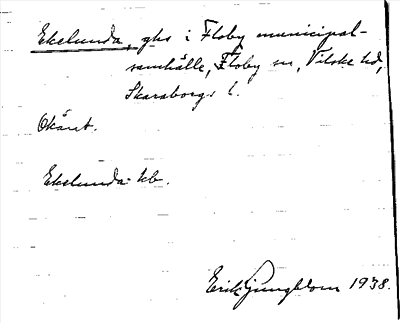 Ekelunda, ghs i Floby municipal-
samhälle, Floby sn, Vilske hd,
Skaraborgs l.
Okänt.
Ekelunda hb.
Erik Ljungblom 1938.